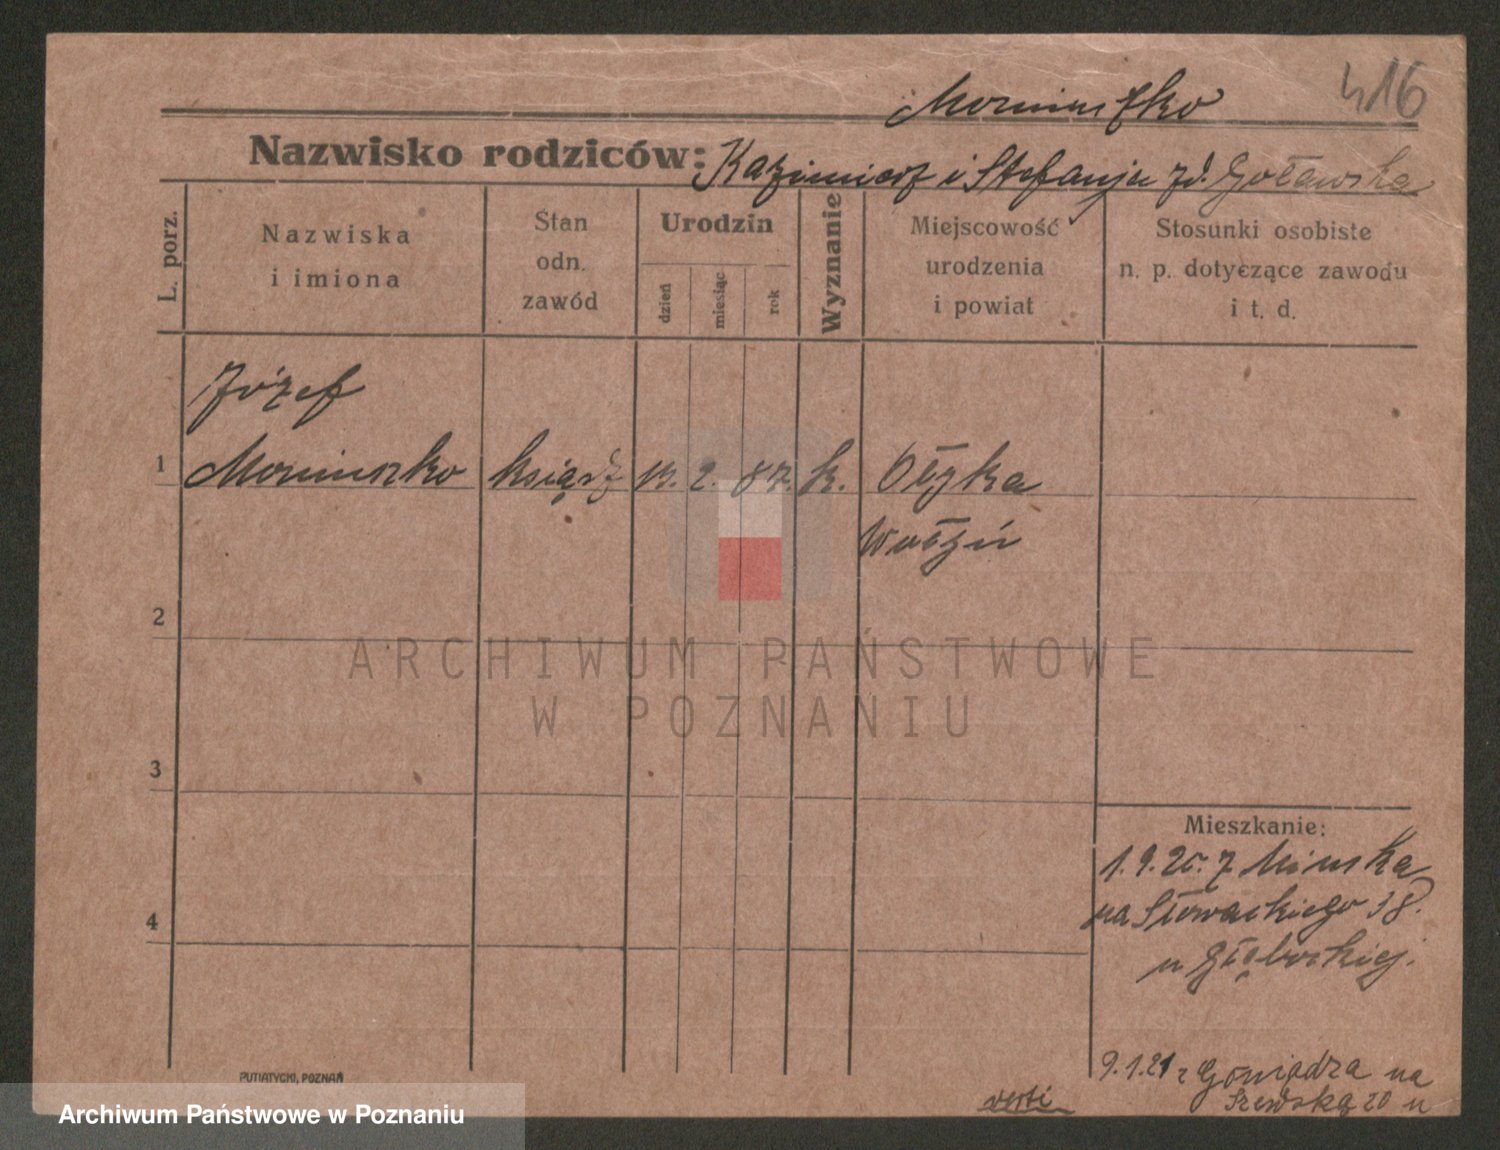 416
Moniuszko
Nazwisko rodziców: Kazimierz i Stefanja zd. Goławska
L. porz.
Nazwiska
i imiona
Stan
odn.
zawód
Urodzin
dzień
miesiąc
rok
Wyznanie
Miejscowość
urodzenia
i powiat
Stosunki osobiste
n. p. dotyczące zawodu
i t. d.
Józef
1 Moniuszko ksiądz 13. 2. 87. k. Ołyka
Wołyń
2
ARCHIWUM PAŃSTWOWE
W POZNANIU
3
Mieszkanie:
1.9.20. z Mińska
na Słowackiego 38.
u Głęborkiej.
4
9.1.21 z Goniądza na
Szewską 20 u
verti
PUTIATYCKI, POZNAŃ
Archiwum Państwowe w Poznaniu